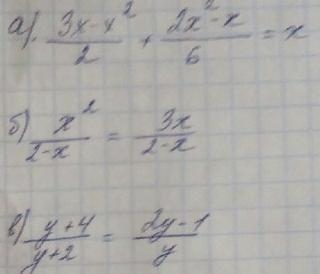 а). (3x-x²)/2 + (2x²-x)/6 = x
б) x²/(2-x) = 3x/(2-x)
в) (y+4)/(y+2) = (2y-1)/y